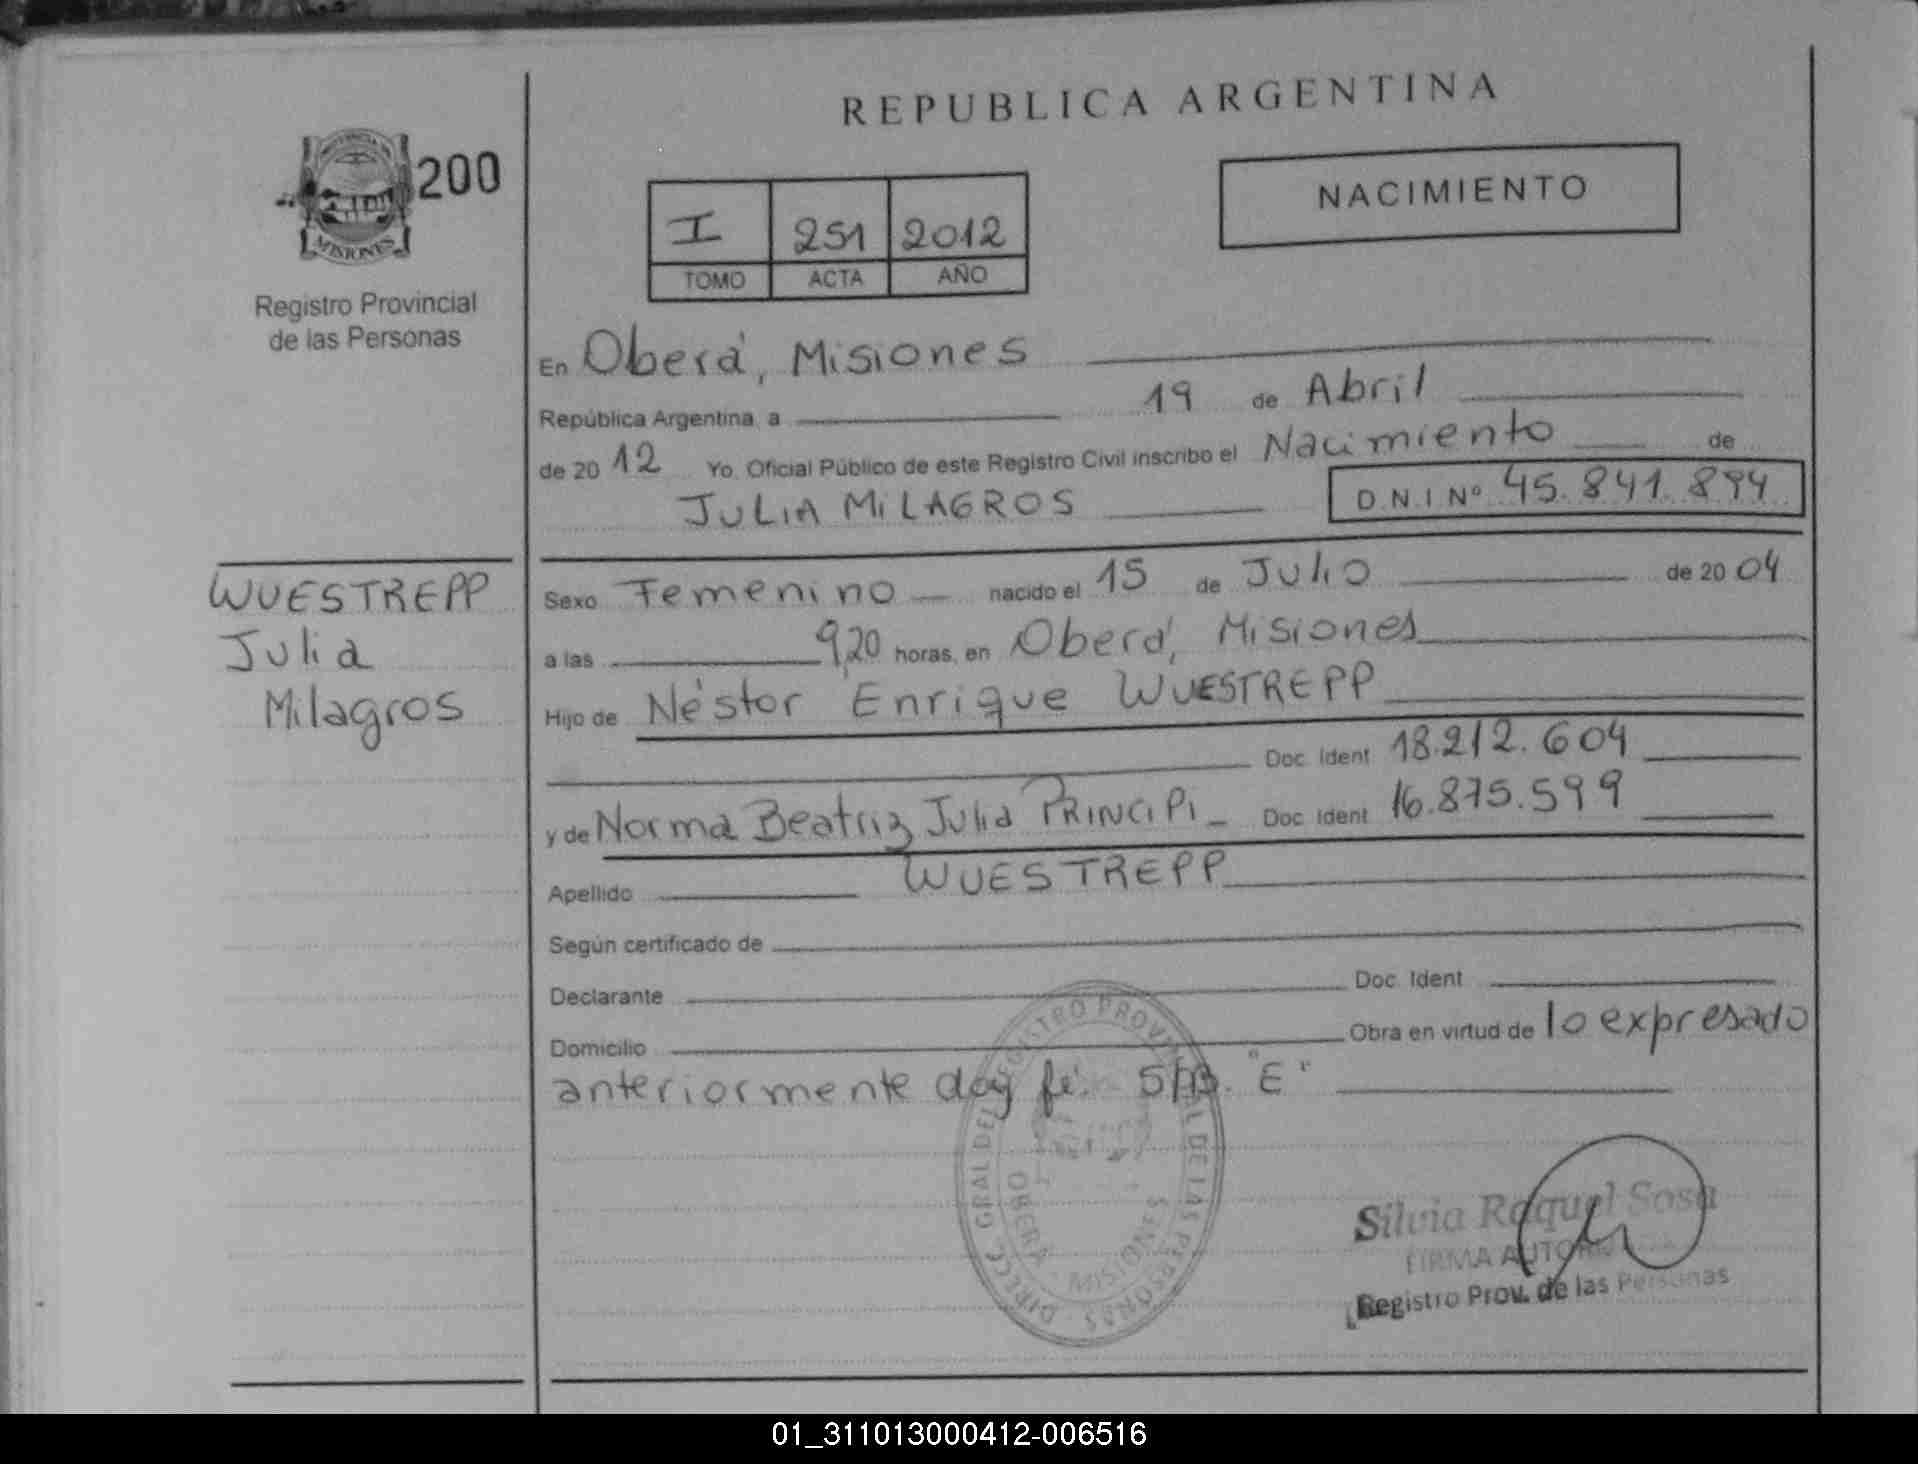 REPUBLICA ARGENTINA
PROVINCIA DE
MISIONES
200
Registro Provincial
de las Personas
NACIMIENTO
I 251 2012
TOMO ACTA AÑO
En Oberá, Misiones
República Argentina, a 19 de Abril
de 20 12 Yo, Oficial Público de este Registro Civil inscribo el Nacimiento de
JULIA MILAGROS D.N.I Nº 45.841.894
WUESTREPP
Julia
Milagros
Sexo Femenino nacido el 15 de Julio de 20 04
a las 9,20 horas, en Oberá, Misiones
Hijo de Néstor Enrique WUESTREPP
Doc. Ident 18.212.604
y de Norma Beatriz Julia PRINCIPI Doc. Ident 16.875.599
Apellido WUESTREPP
Según certificado de
Declarante Doc. Ident
Domicilio Obra en virtud de lo expresado
anteriormente doy fé. "E"
DIRECC. GRAL DEL REGISTRO PROVINCIAL DE LAS PERSONAS
OBERÁ MISIONES
Silvia Raquel Sosa
FIRMA
Registro Prov. de las Personas
01_311013000412-006516